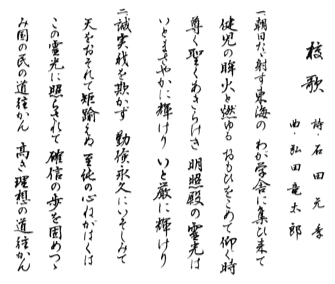 校歌
詩 石田元季
曲・弘田竜太郎
一 朝日たゞ射す東海の わが学舎に集ひ来て
健児の眸火と燃ゆる おもひをこめて仰ぐ時
尊し聖くあきらけき 明照殿の霊光は
いとまさやかに輝けり いと厳に輝けり
二 誠実我を欺かず 勤倹永久にいそしみて
天をおそれて矩踰えぬ 至純の心ねがはくは
この霊光に照らされて 確信の歩を固めつゝ
み国の民の道往かん 高き理想の道往かん